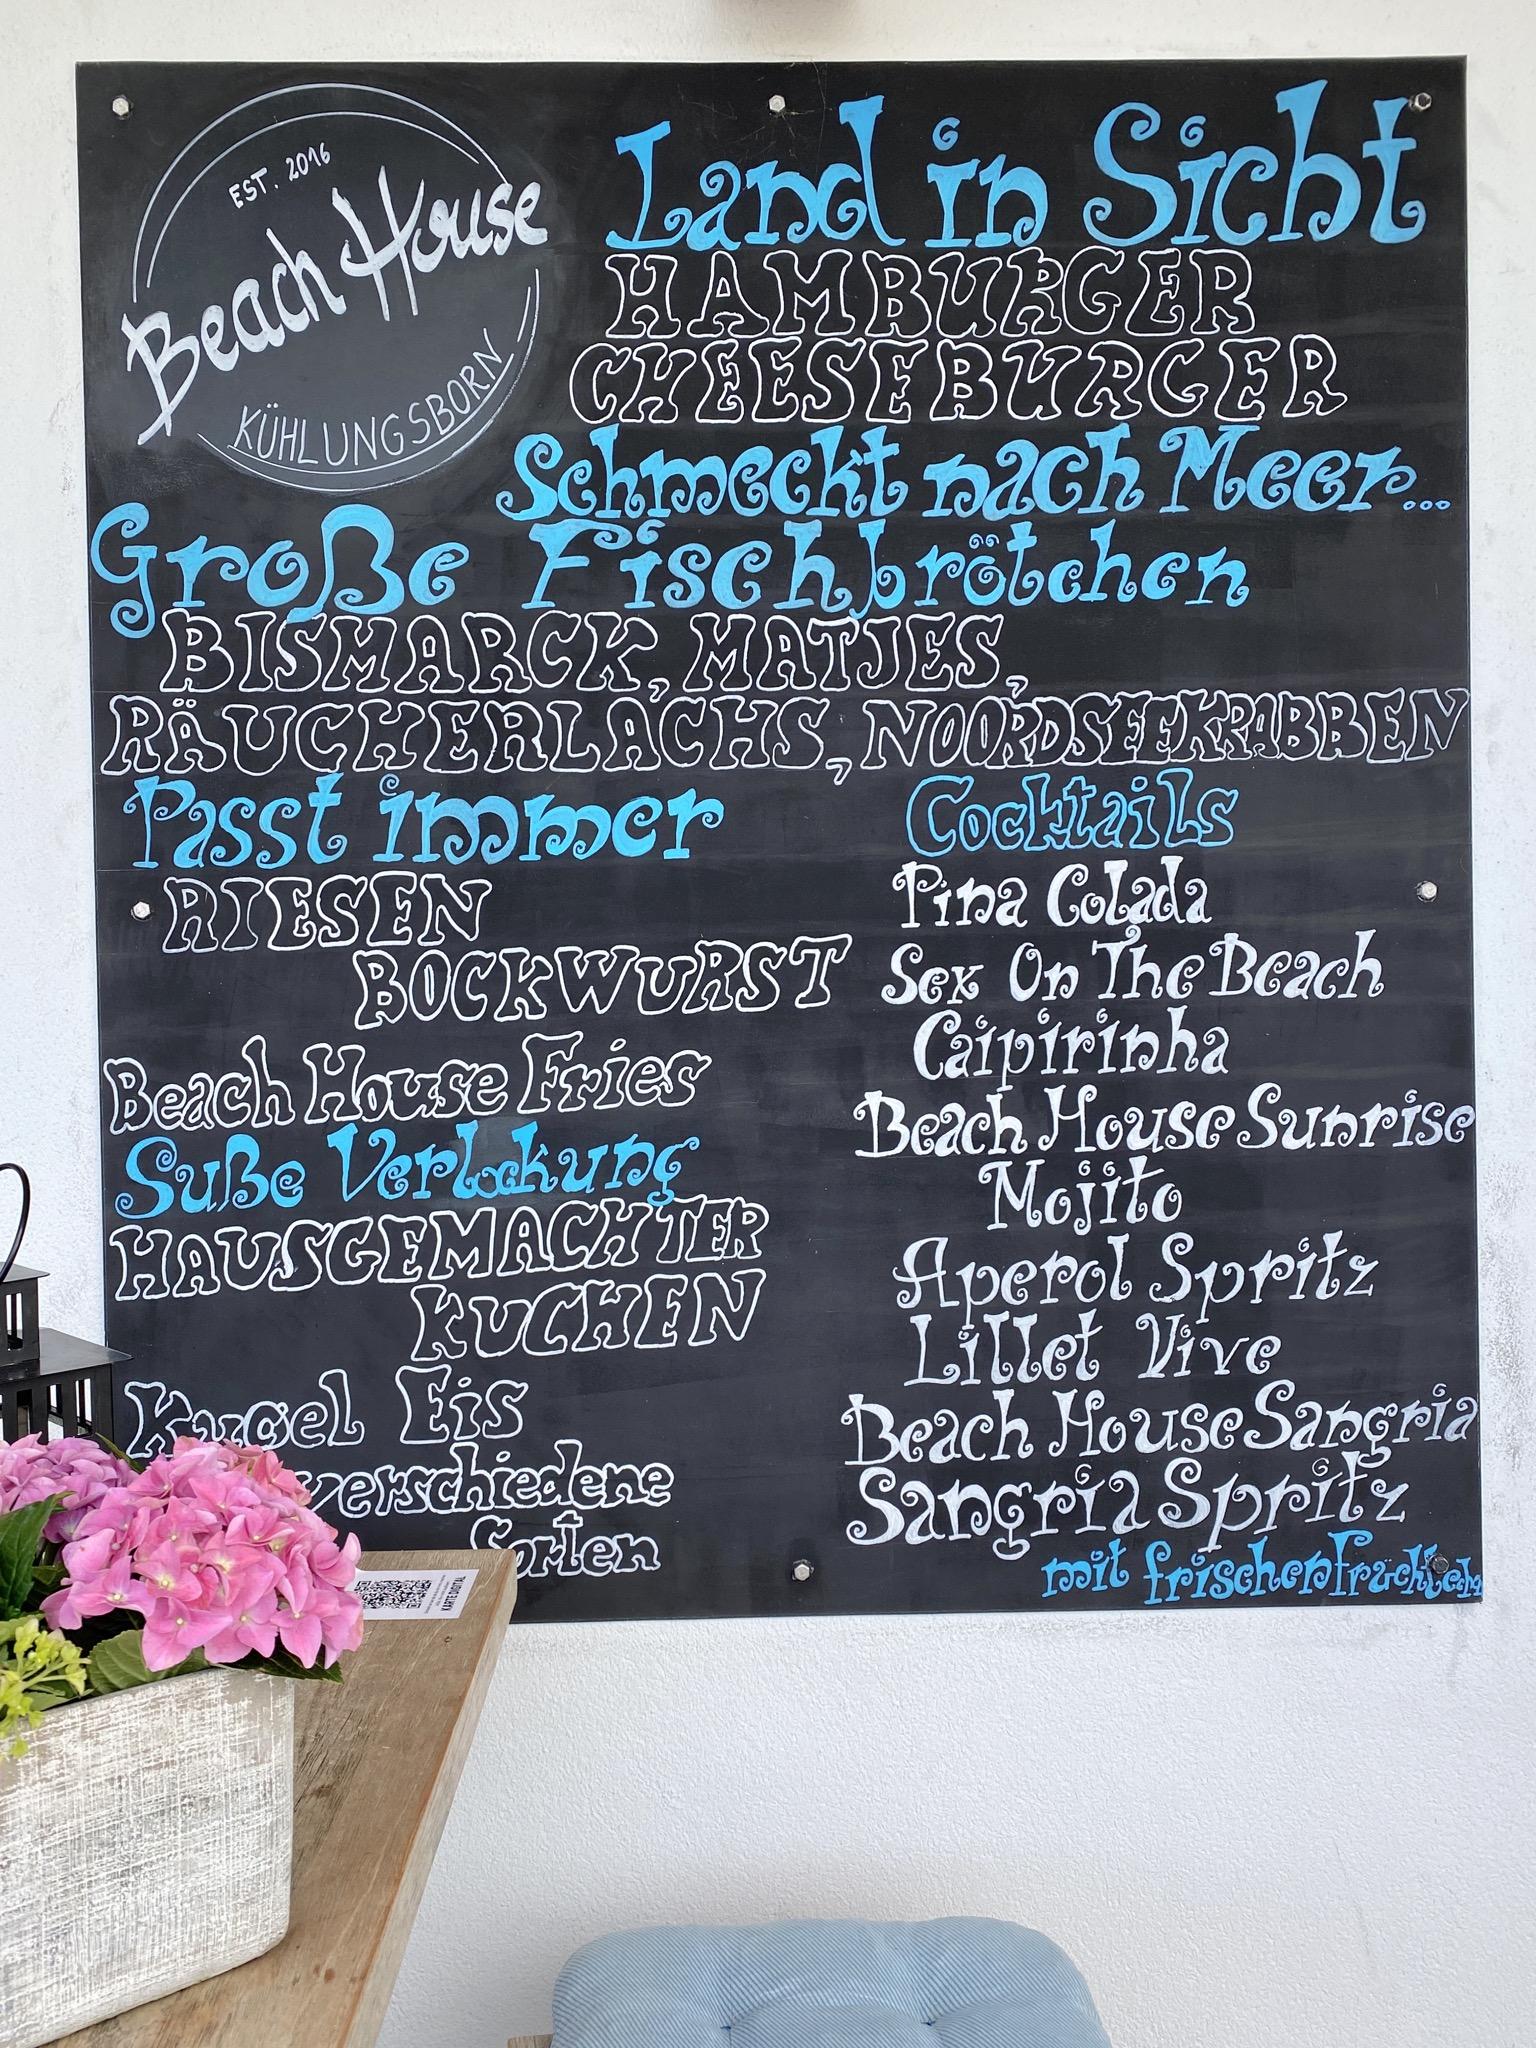 EST. 2016
Beach House
KÜHLUNGSBORN
Land in Sicht
HAMBURGER
CHEESEBURGER
Schmeckt nach Meer...
Große Fischbrötchen
BISMARCK, MATJES,
RÄUCHERLACHS, NOORDSEEKRABBEN
Passt immer
RIESEN
BOCKWURST
Beach House Fries
Suße Verlockung
HAUSGEMACHTER
KUCHEN
Kugel Eis
verschiedene
Sorten
Cocktails
Pina Colada
Sex On The Beach
Caipirinha
Beach House Sunrise
Mojito
Aperol Spritz
Lillet Vive
Beach House Sangria
Sangria Spritz
mit frischen
KARTE DIGITAL